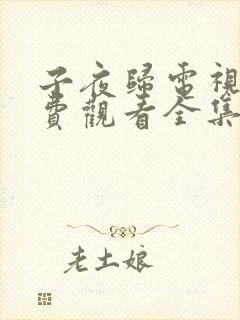 子夜歸電視
費觀看全集
老土娘